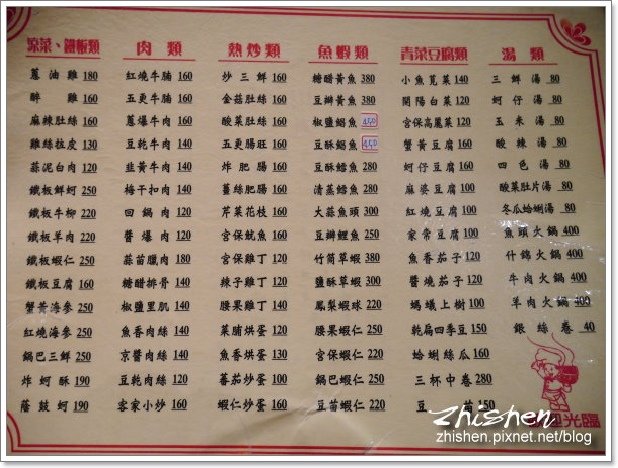 涼菜、鐵板類
蔥油雞 180
醉雞 160
麻辣肚絲 160
雞絲拉皮 130
蒜泥白肉 120
鐵板鮮蚵 250
鐵板牛柳 220
鐵板羊肉 220
鐵板蝦仁 250
鐵板豆腐 160
蟹黃海參 250
紅燒海參 250
鍋巴三鮮 250
炸蚵酥 190
蔭豉蚵 190
肉類
紅燒牛腩 160
五更牛腩 160
蔥爆牛肉 160
豆乾牛肉 140
韭黃牛肉 140
梅干扣肉 140
回鍋肉 120
醬爆肉 120
蒜苗臘肉 180
糖醋排骨 140
椒鹽里肌 140
魚香肉絲 140
京醬肉絲 140
豆乾肉絲 120
客家小炒 160
熱炒類
炒三鮮 160
金菇肚絲 160
酸菜肚絲 160
五更腸旺 160
炸肥腸 160
薑絲肥腸 160
芹菜花枝 160
宮保魷魚 160
宮保雞丁 140
辣子雞丁 140
腰果雞丁 140
菜脯烘蛋 120
魚香烘蛋 130
蕃茄炒蛋 100
蝦仁炒蛋 160
魚蝦類
糖醋黃魚 380
豆瓣黃魚 380
椒鹽鯧魚 450
豆酥鯧魚 450
豆酥鱈魚 280
清蒸鱈魚 280
大蒜魚頭 300
豆瓣鯉魚 250
竹筒草蝦 380
鹽酥草蝦 300
鳳梨蝦球 220
腰果蝦仁 250
宮保蝦仁 220
鍋巴蝦仁 250
豆苗蝦仁 220
青菜豆腐類
小魚莧菜 140
開陽白菜 120
宮保高麗菜 120
蟹黃豆腐 160
蚵仔豆腐 160
麻婆豆腐 100
紅燒豆腐 100
家常豆腐 100
魚香茄子 120
醬燒茄子 120
螞蟻上樹 100
乾扁四季豆 150
蛤蜊絲瓜 160
三杯中卷 280
豆苗 150
湯類
三鮮湯 80
蚵仔湯 80
玉米湯 80
酸辣湯 80
四色湯 80
酸菜肚片湯 80
冬瓜蛤蜊湯 80
魚頭火鍋 400
什錦火鍋 400
牛肉火鍋 400
羊肉火鍋 400
銀絲卷 40
歡迎光臨
Zhishen
zhishen.pixnet.net/blog